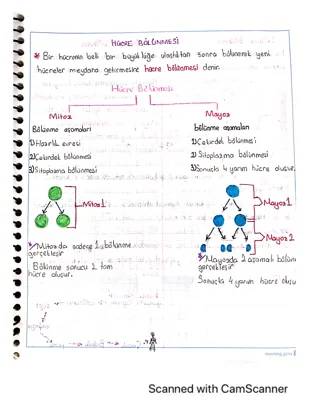 HÜCRE BÖLÜNMESİ
* Bir hücrenin belli bir büyüklüğe ulaştıktan sonra bölünerek yeni
hücreler meydana getirmesine hücre bölünmesi denir.
Hücre Bölünmesi
Mitoz
Bölünme aşamaları
1) Hazırlık evresi
2) Çekirdek bölünmesi
3) Sitoplazma bölünmesi
Mitoz 1
Mitozda sadece 1 bölünme
gerçekleşir
Bölünme sonucu 2 tam
hücre oluşur.
Mayoz
bölünme aşamaları
1) Çekirdek bölünmesi
2) Sitoplazma bölünmesi
3) Sonuçta 4 yarım hücre oluşur.
Mayoz 1
Mayoz 2
Mayozda 2 aşamalı bölün
gerçekleşir
Sonuçta 4 yarım hücre olu
Scanned with CamScanner